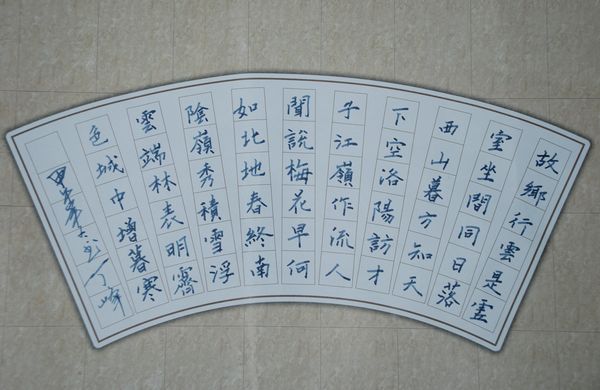 故鄉行雲是虛
室坐間同日落
西山暮方知天
下空洛陽訪才
子江嶺作流人
聞說梅花早何
如北地春終南
陰嶺秀積雪浮
雲端林表明霽
色城中增暮寒
甲午年丁峰